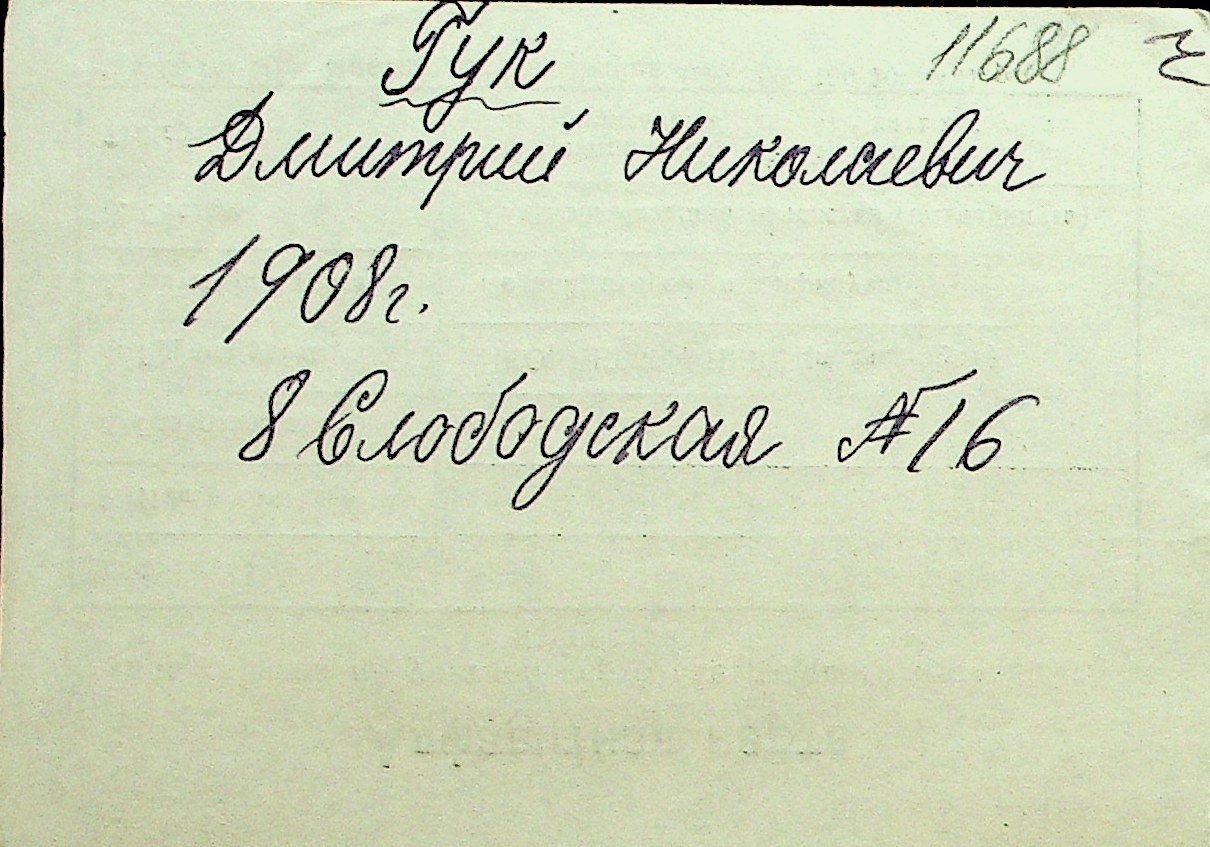 Гук 11688
Дмитрий Николаевич
1908г.
8 Слободская № 16